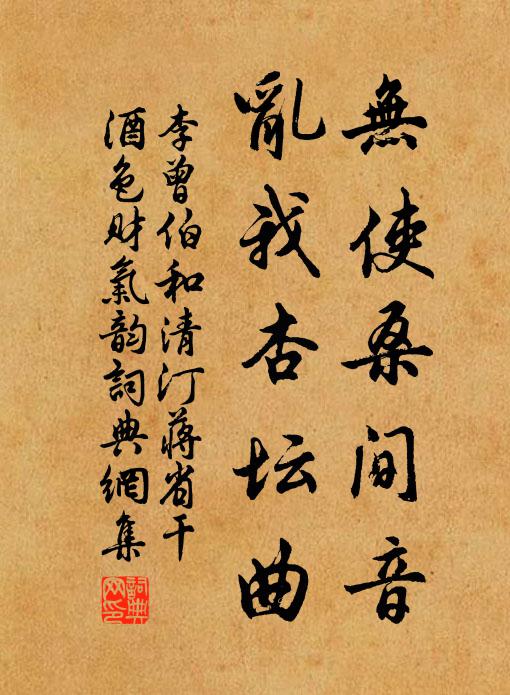 無使桑間音
亂我杏坛曲
李曾伯和清汀蔣省干
酒色財氣韵詞典網集
詞典网印